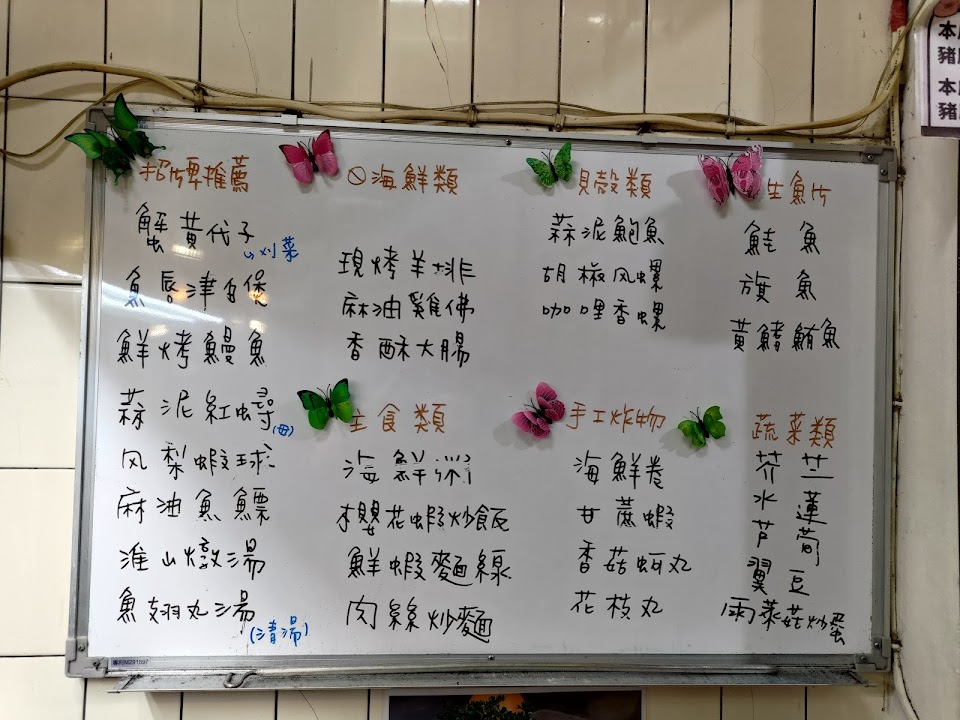 招牌推薦
蟹黃代子
刈菜
魚唇津白煲
鮮烤鰻魚
蒜泥紅蟳
(母)
风梨蝦球
麻油魚鰾
淮山燉湯
魚翅丸湯
(清湯)
海鮮類
現烤羊排
麻油雞佛
香酥大腸
主食類
海鮮
櫻花蝦炒飯
鮮蝦麵線
肉絲炒麵
貝殼類
蒜泥鮑魚
胡椒风螺
咖哩香螺
手工炸物
海鮮卷
甘蔗蝦
香菇蚵丸
花枝丸
生魚片
鮭魚
旗魚
黃鰭鮪魚
蔬菜類
芥
水蓮
芦筍
翼豆
雨萊菇炒蛋
專利M291897
本
豬
本
豬